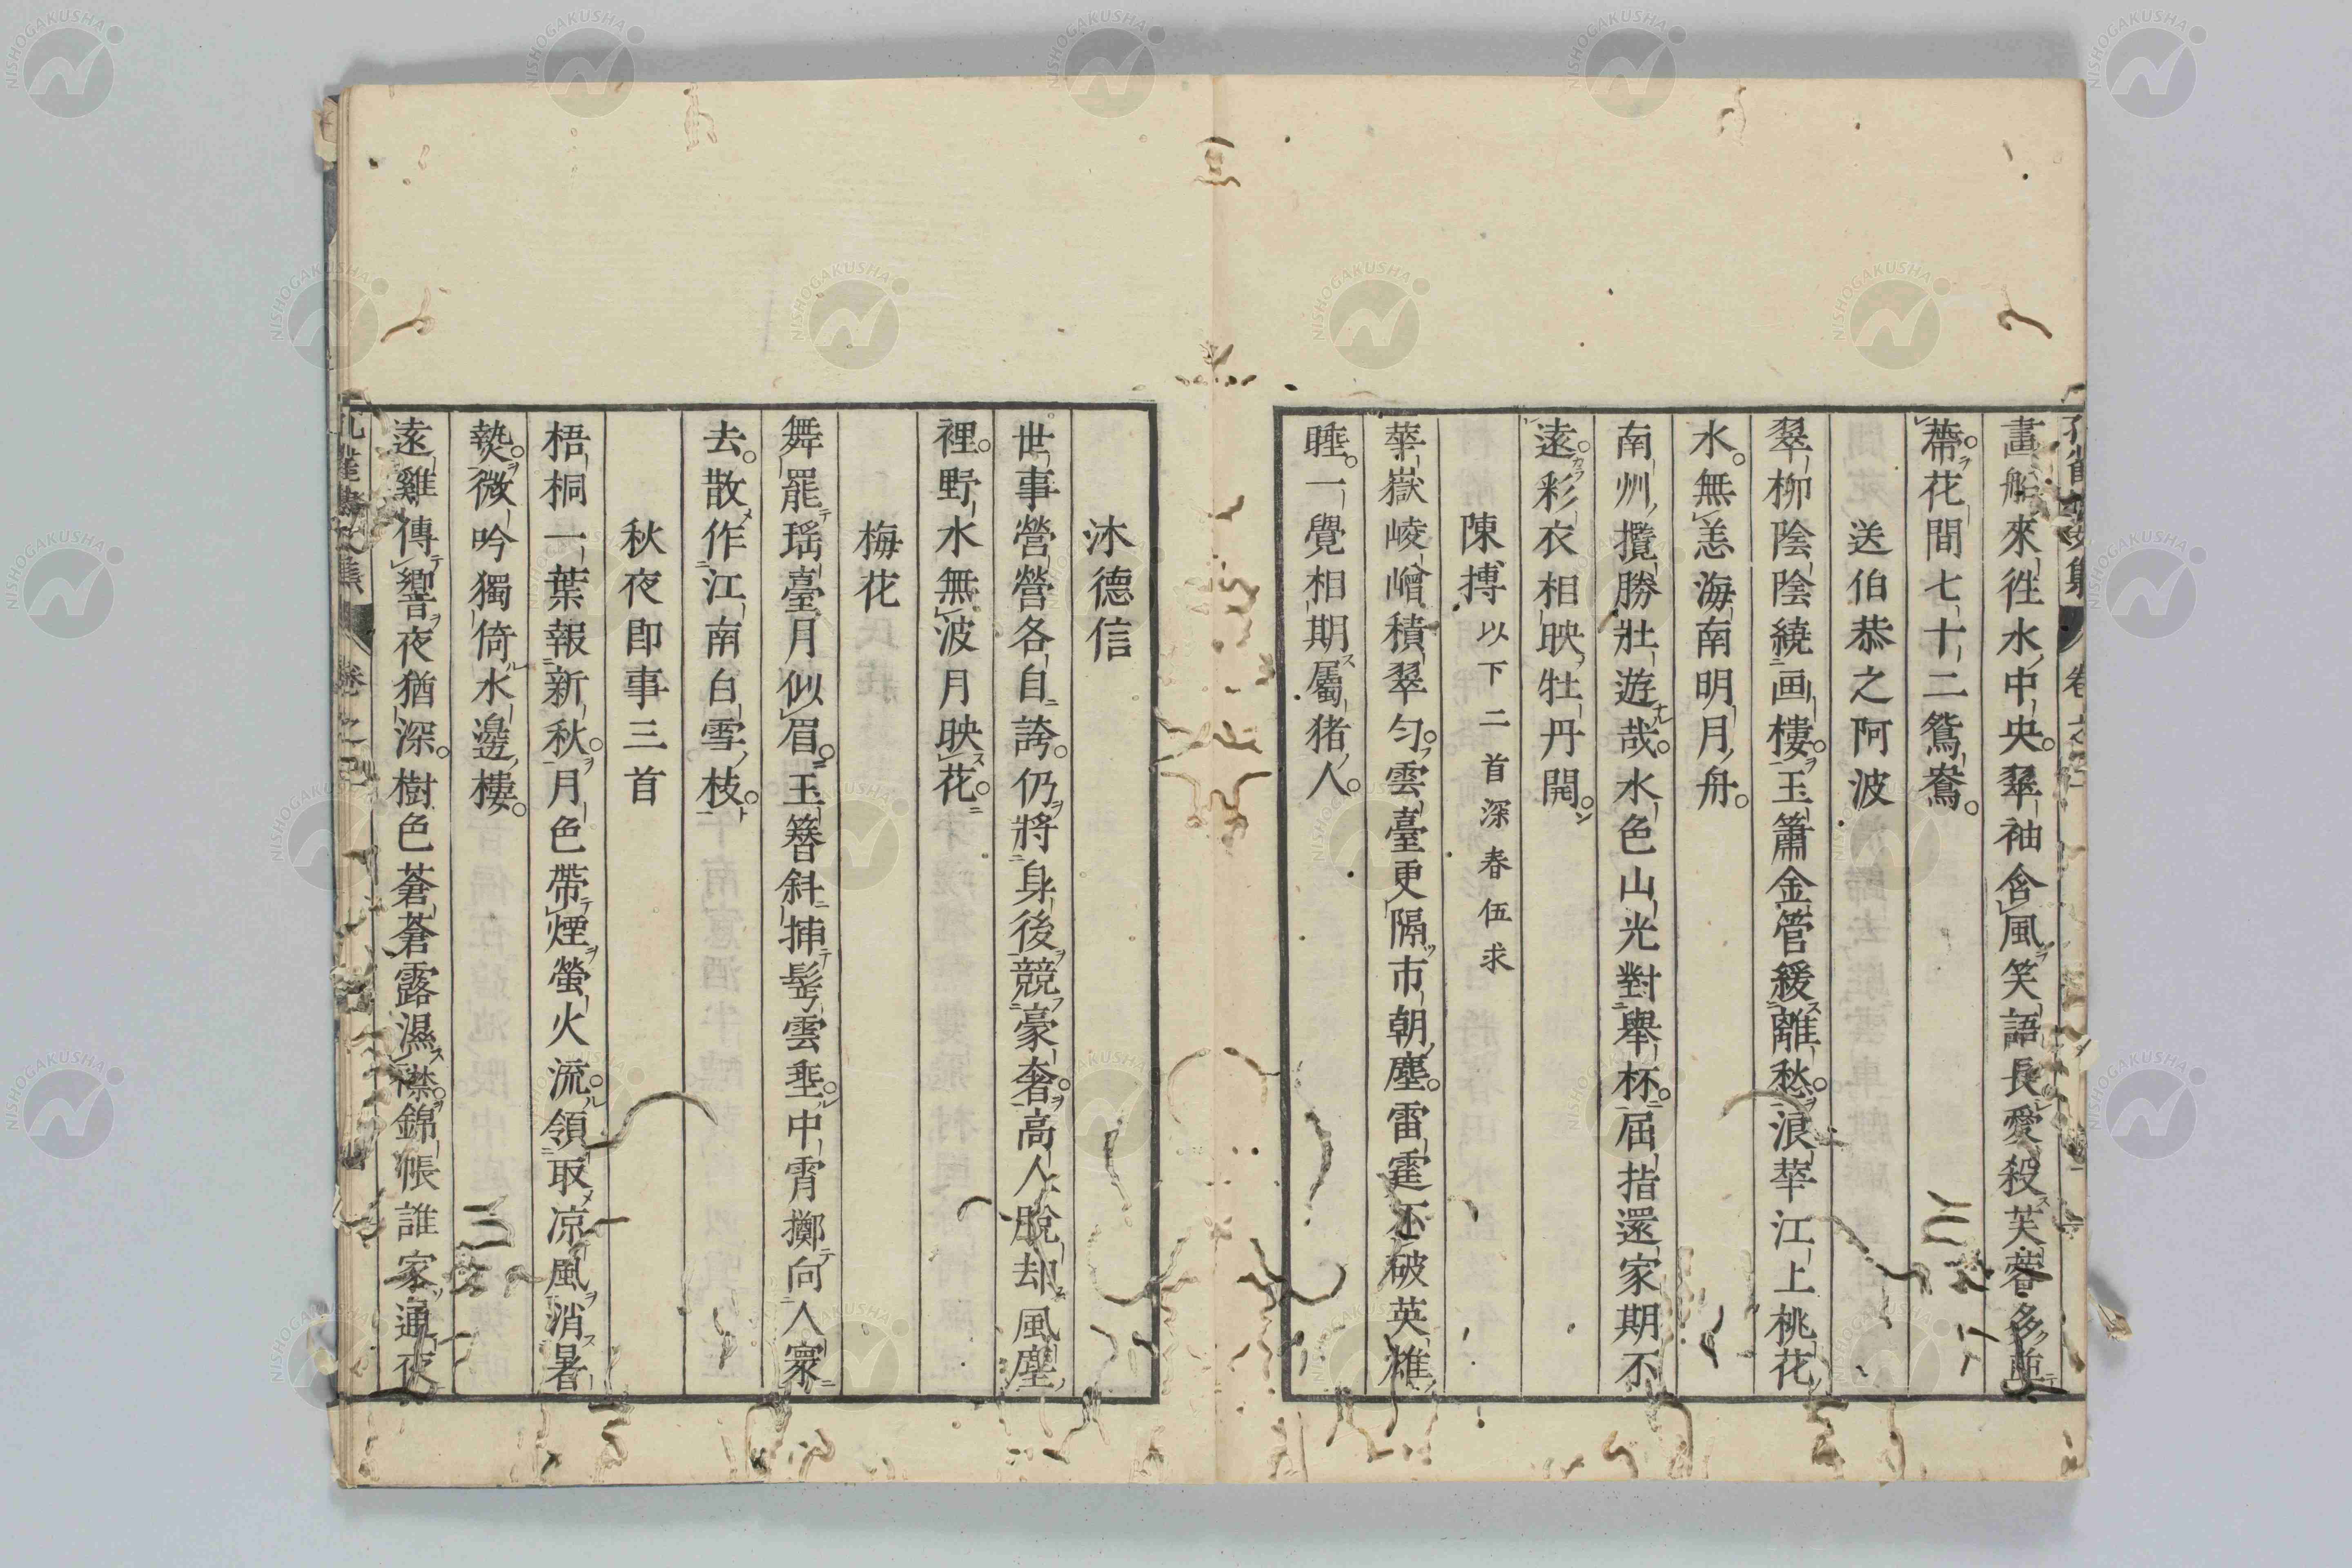 畫船來往水中央翠袖含風笑語長愛殺芙蓉多並
蔕花間七十二鴛鴦
送伯恭之阿波
翠柳陰陰繞画樓玉簫金管緩離愁浪華江上桃花
水無恙海南明月舟
南州攬勝壯遊哉水色山光對舉杯屈指還家期不
遠彩衣相映牡丹開
陳摶以下二首深春伍求
華嶽崚嶒積翠勻雲臺更隔市朝塵雷霆不破英雄
睡一覺相期屬猪人
沐德信
世事營營各自誇仍將身後競豪奢高人脫却風塵
裡野水無波月映花
梅花
舞罷瑤臺月似眉玉簪斜插髩雲垂中宵擲向人寰
去散作江南白雪枝
秋夜即事三首
梧桐一葉報新秋月色帶煙螢火流領取凉風消暑
𤍠微吟獨倚水邊樓
遠雞傳響夜猶深樹色蒼蒼露濕襟錦帳誰家通夜
卷之